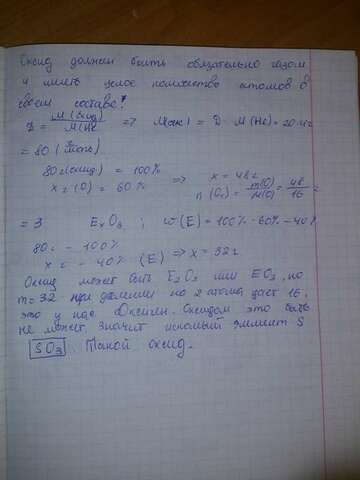 Оксид должен быть обязательно газом
и иметь целое количество атомов О
своем составе!
D = M(окид)/M(He) => M(окс) = D · M(He) = 20·4г
= 80 (г/моль)
80г(оксид) = 100%
x г (O) = 60% => x = 48г
n(O) = m(O)/M(O) = 48/16 =
= 3 ExO3 ; w(E) = 100%-60%=40%
80г - 100%
x г - 40% (E) => x = 32г
Оксид может быть E2O3 или EO3, но
m=32 при делении на 2 атома дает 16,
это у нас Оксиген. Оксидом это быть
не может. Значит искомый элемент S
SO3 Такой оксид.